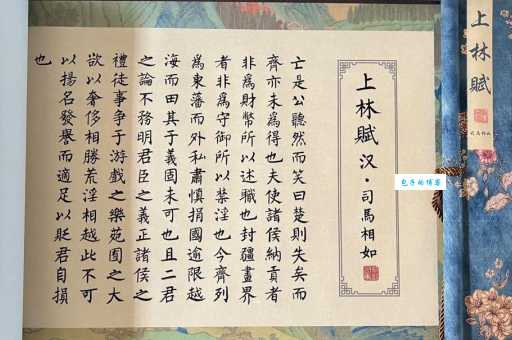 上林賦 汉·司馬相如
亡是公聽然而笑曰楚則失矣而
齊亦未爲得也夫使諸侯納貢者
非爲財幣所以述職也封疆畫界
者非爲守御所以禁淫也今齊列
爲東藩而外私肅慎捐國逾限越
海而田其于義固未可也且二君
之論不務明君臣之義正諸侯之
禮徒事争于游戲之樂苑囿之大
欲以奢侈相勝荒淫相越此不可
以揚名發譽而適足以貶君自損
也
包子的博客
上林賦